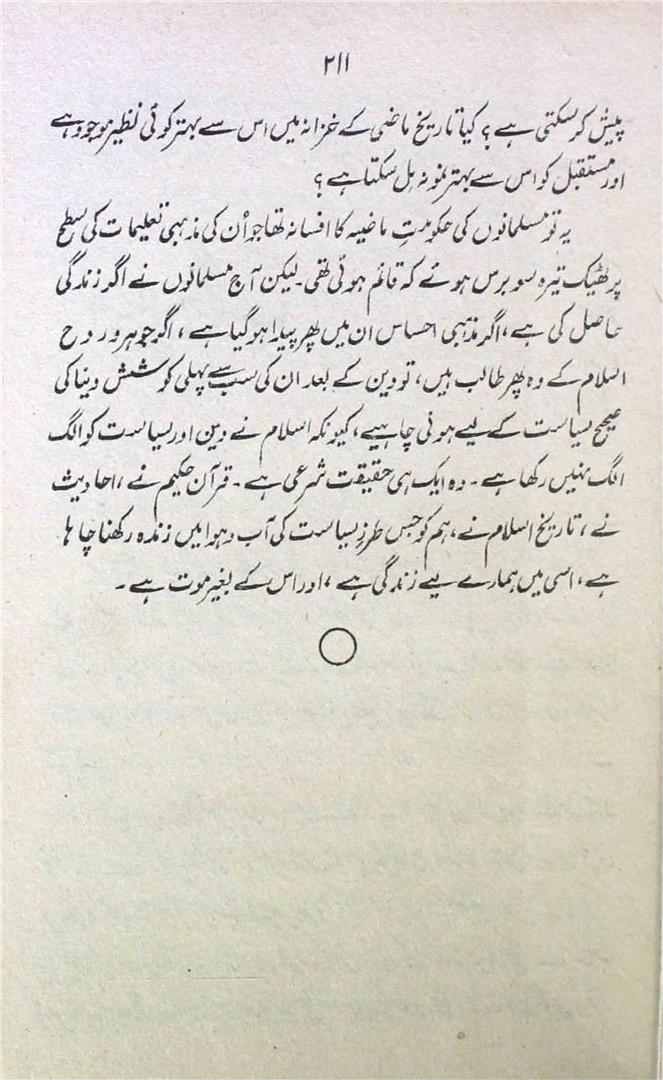 ۲۱۱
پیش کرسکتی ہے ؟ کیا تاریخ ماضی کے خزانہ میں اس سے بہتر کوئی نظیر موجود ہے
اور مستقبل کو اس سے بہتر نمونہ مل سکتا ہے ؟
یہ تو مسلمانوں کی حکومتِ ماضیہ کا افسانہ تھا جو اُن کی مذہبی تعلیمات کی سطح
پر ٹھیک تیرہ سو برس ہوئے کہ قائم ہوئی تھی ۔ لیکن آج مسلمانوں نے اگر زندگی
حاصل کی ہے ، اگر مذہبی احساس ان میں پھر پیدا ہو گیا ہے ، اگر جوہر و روح
اسلام کے وہ پھر طالب ہیں ، تو دین کے بعد ان کی سب سے پہلی کوشش دینا کی
صحیح سیاست کے لیے ہونی چاہیے ، کیونکہ اسلام نے دین اور سیاست کو الگ
الگ نہیں رکھا ہے ۔ وہ ایک ہی حقیقت شرعی ہے ۔ قرآن حکیم نے ، احادیث
نے ، تاریخ اسلام نے ، ہم کو جس طرزِ سیاست کی آب و ہوا میں زندہ رکھنا چاہا
ہے ، اسی میں ہمارے لیے زندگی ہے ، اور اس کے بغیر موت ہے ۔